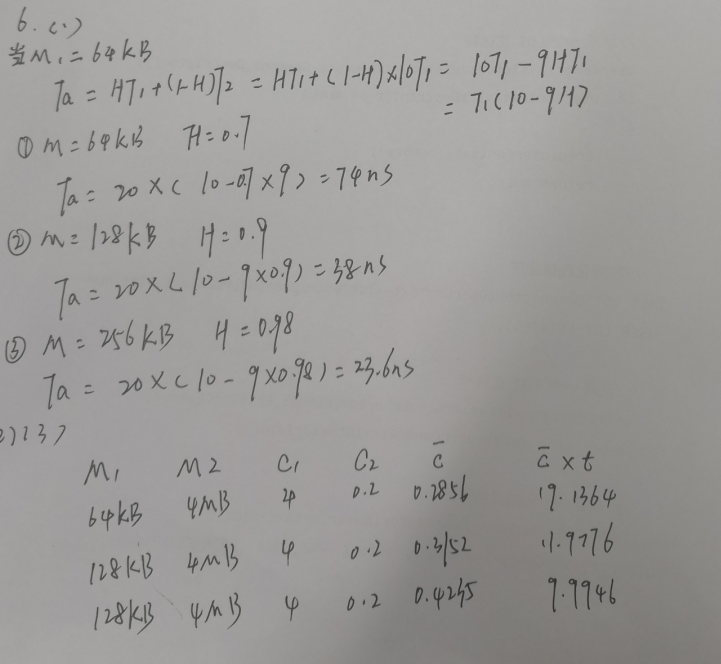 6. (1)
当M₁=64kB
Ta = HT₁+(1-H)T₂ = HT₁+(1-H)×10T₁ = 10T₁-9HT₁
= T₁(10-9H)
① M=64kB H=0.7
Ta = 20×(10-0.7×9)=74ns
② M=128kB H=0.9
Ta = 20×(10-9×0.9)=38ns
③ M=256kB H=0.98
Ta = 20×(10-9×0.98)=23.6ns
2)(3)
M₁ M2 C₁ C₂ c̄ c̄×t
64kB 4MB 4 0.2 0.2856 19.1364
128kB 4MB 4 0.2 0.3152 11.9776
128kB 4MB 4 0.2 9.9946